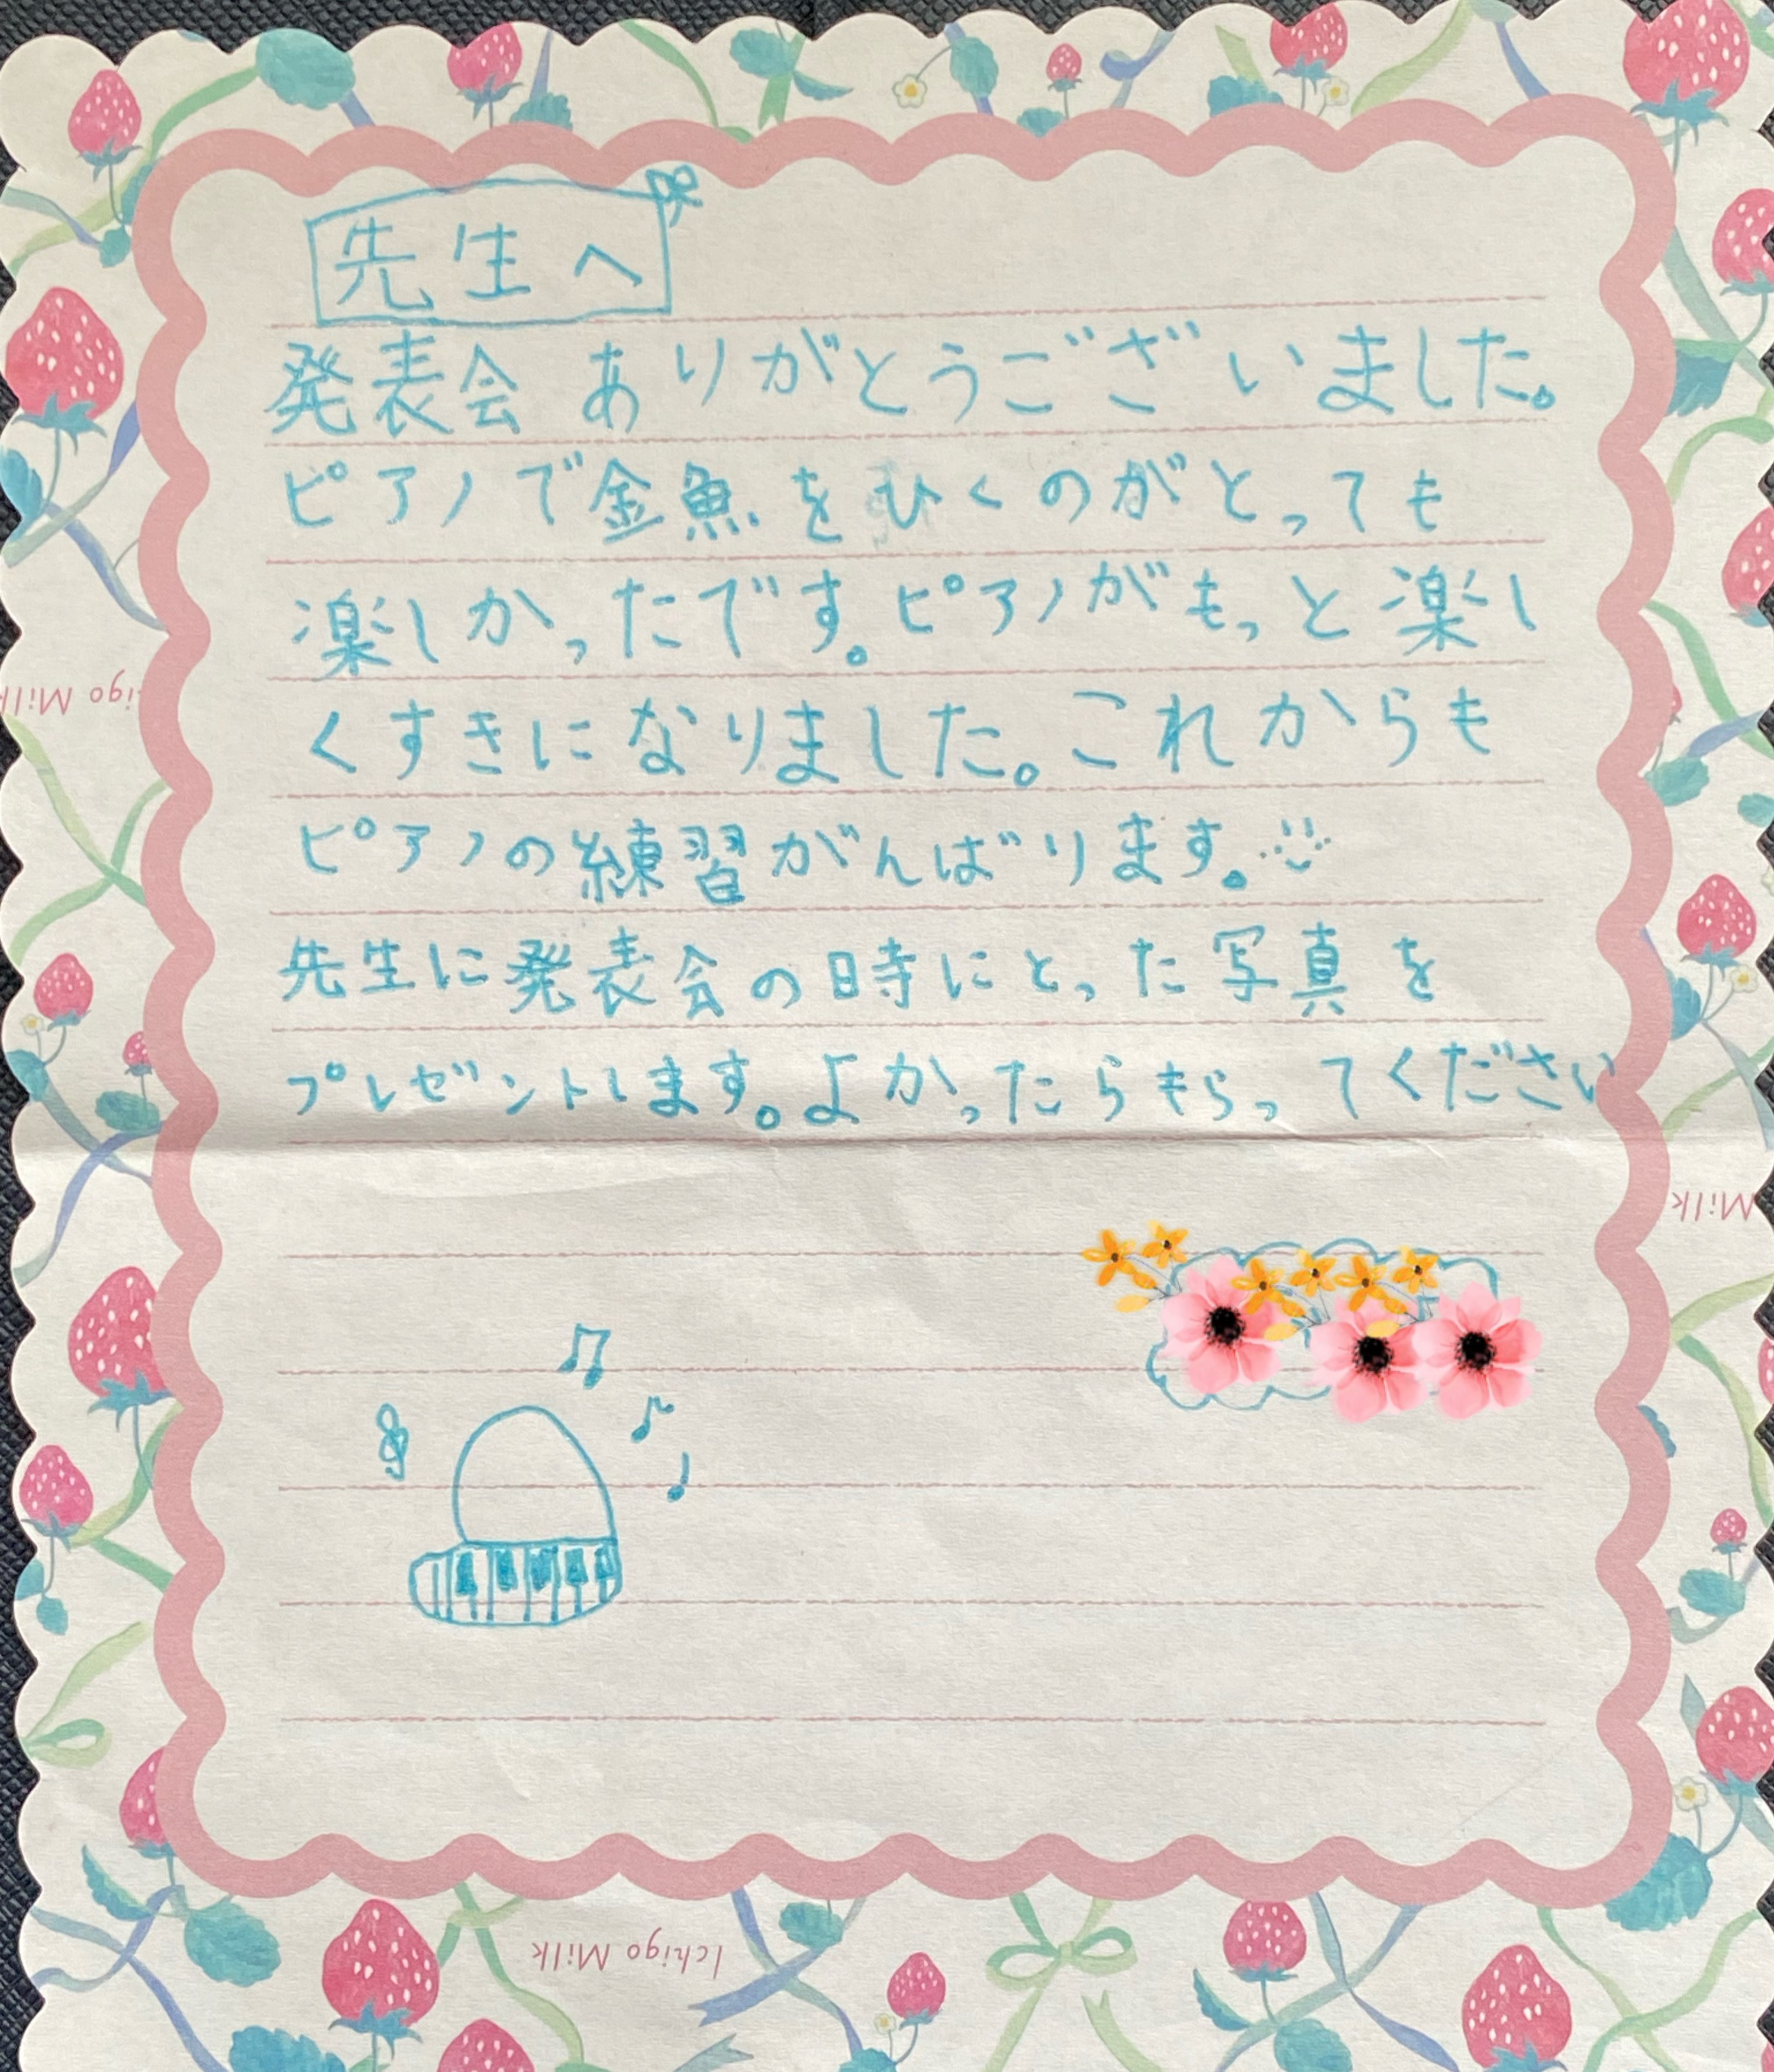 先生へ
発表会 ありがとうございました。
ピアノで金魚をひくのがとっても
楽しかったです。ピアノがもっと楽し
くすきになりました。これからも
ピアノの練習がんばります。
先生に発表会の時にとった写真を
プレゼントします。よかったらもらってください
igo Milk
Milk
Ichigo Milk